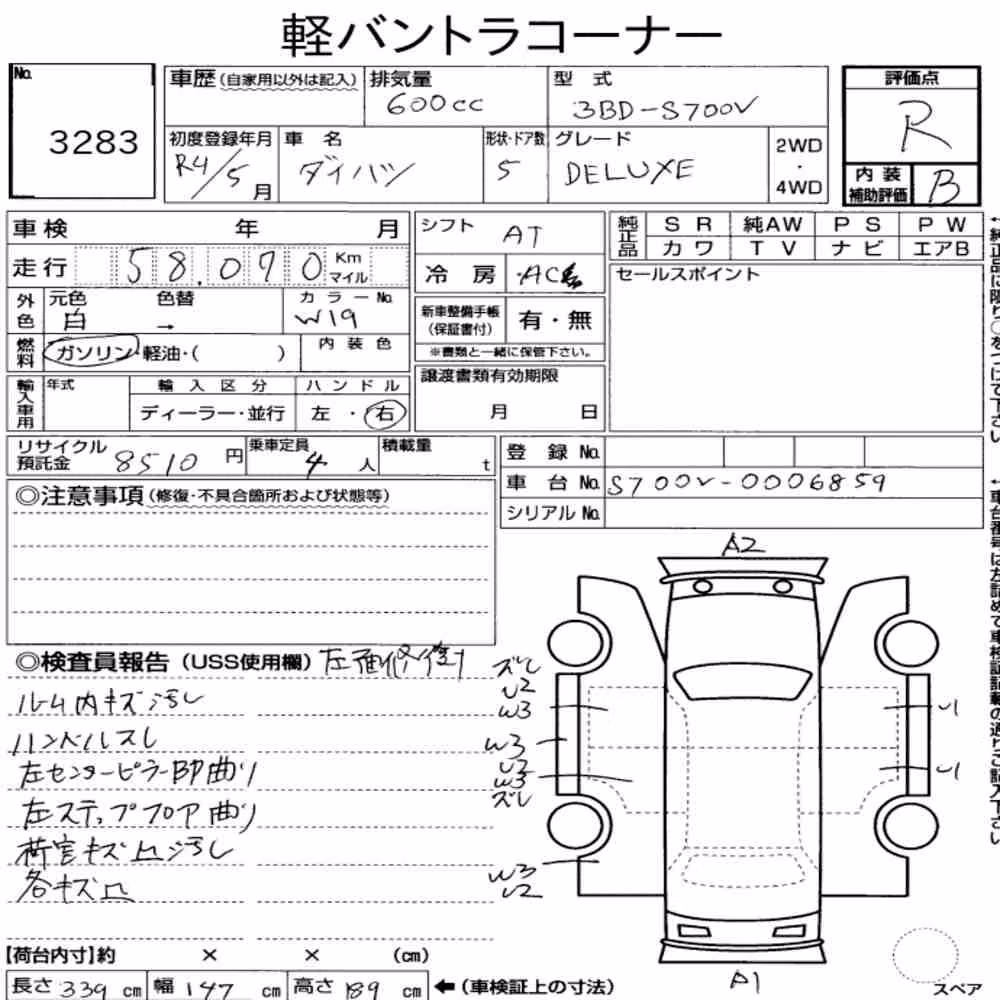 軽バントラコーナー
No. 3283
車歴(自家用以外は記入)
排気量 600cc
型式 3BD-S700V
初度登録年月 R4/5月
車名 ダイハツ
形状・ドア数 5
グレード DELUXE
2WD・4WD
評価点 R
内装補助評価 B
車検 年 月
走行 58,070 Km マイル
外色 元色 白 色替 → カラーNo. W19
燃料 ガソリン・軽油・( ) 内装色
輸入車用 年式 輸入区分 ディーラー・並行 ハンドル 左・右
シフト AT
冷房 AC
新車整備手帳(保証書付) 有・無
※書類と一緒に保管下さい。
譲渡書類有効期限 月 日
純正品 SR 純AW PS PW
カワ TV ナビ エアB
セールスポイント
リサイクル預託金 8510円 乗車定員 4人 積載量 t
登録No.
車台No. S700V-0006859
シリアルNo.
◎注意事項(修復・不具合箇所および状態等)
◎検査員報告(USS使用欄)
ルーム内キズ汚レ
ハンドルスレ
左センターピラー 曲り
左ステップフロア曲り
キズ凹汚レ
各キズ凹
A2
ズレ
U2
W3
W3
U2
W3
ズレ
W3
U2
U1
U1
A1
スペア
【荷台内寸】約 × × (cm)
長さ 339 cm 幅 147 cm 高さ 189 cm ←(車検証上の寸法)